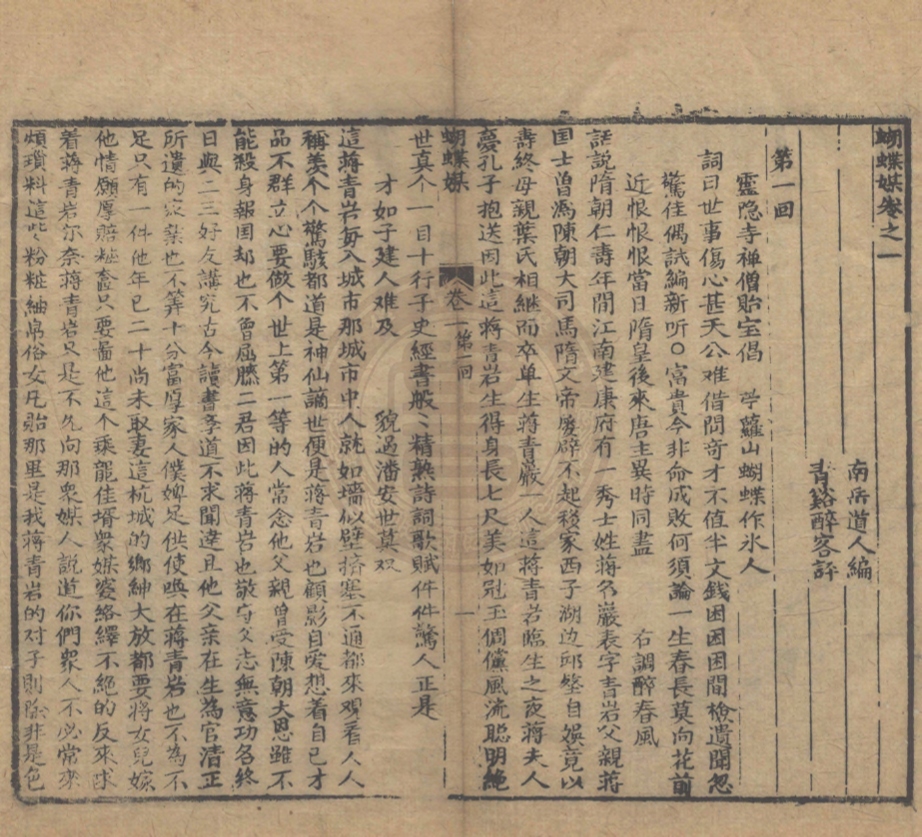 蝴蝶媒卷之一
南岳道人編
青谿醉客評
第一回
靈隐寺禅僧貽宝倡　苧蘿山蝴蝶作氷人
詞曰世事傷心甚天公难借問奇才不值半文錢困困困間檢遺聞忽
驚佳偶試編新听○富貴今非命成敗何須論一生春長莫向花前
近恨恨恨當日隋皇後來唐主異時同盡　右調醉春風
話說隋朝仁壽年間江南建康府有一秀士姓蒋名巖表字青岩父親蒋
国士曽爲陳朝大司馬隋文帝屡辟不起移家西子湖边邱壑自娯竟以
壽終母親葉氏相継而卒单生蒋青巖一人這蒋青岩临生之夜蒋夫人
夢孔子抱送因此這蒋青岩生得身長七尺美如冠玉倜儻風流聪明絶
蝴蝶媒　卷一　第一回　一
世真个一目十行子史經書般〻精熟詩詞歌賦件件驚人正是
才如子建人难及　貌過潘安世莫双
這蒋青岩每入城市那城市中人就如墻似壁擠塞不通都來观看人人
稱羡个个驚駭都道是神仙謫世便是蒋青岩也顧影自爱想着自已才
品不群立心要做个世上第一等的人當念他父親曽受陳朝大恩雖不
能殺身報国却也不曽屈膝二君因此蒋青岩也敬守父志無意功名終
日與二三好友講究古今讀書季道不求聞達且他父亲在生為官清正
所遺的家業也不筭十分富厚家人僕婢足供使喚在蒋青岩也不為不
足只有一件他年已二十尚未取妻這杭城的鄉紳大放都要将女兒嫁
他情願厚賠粧奩只要啚他這个乘龍佳壻衆媒婆絡繹不絶的反來求
着蒋青岩尔奈蒋青岩只是不允向那衆媒人説道你們衆人不必常來
煩瓆料這些粉粧紬帛俗女凡貽那里是我蒋青岩的对子則除非是色